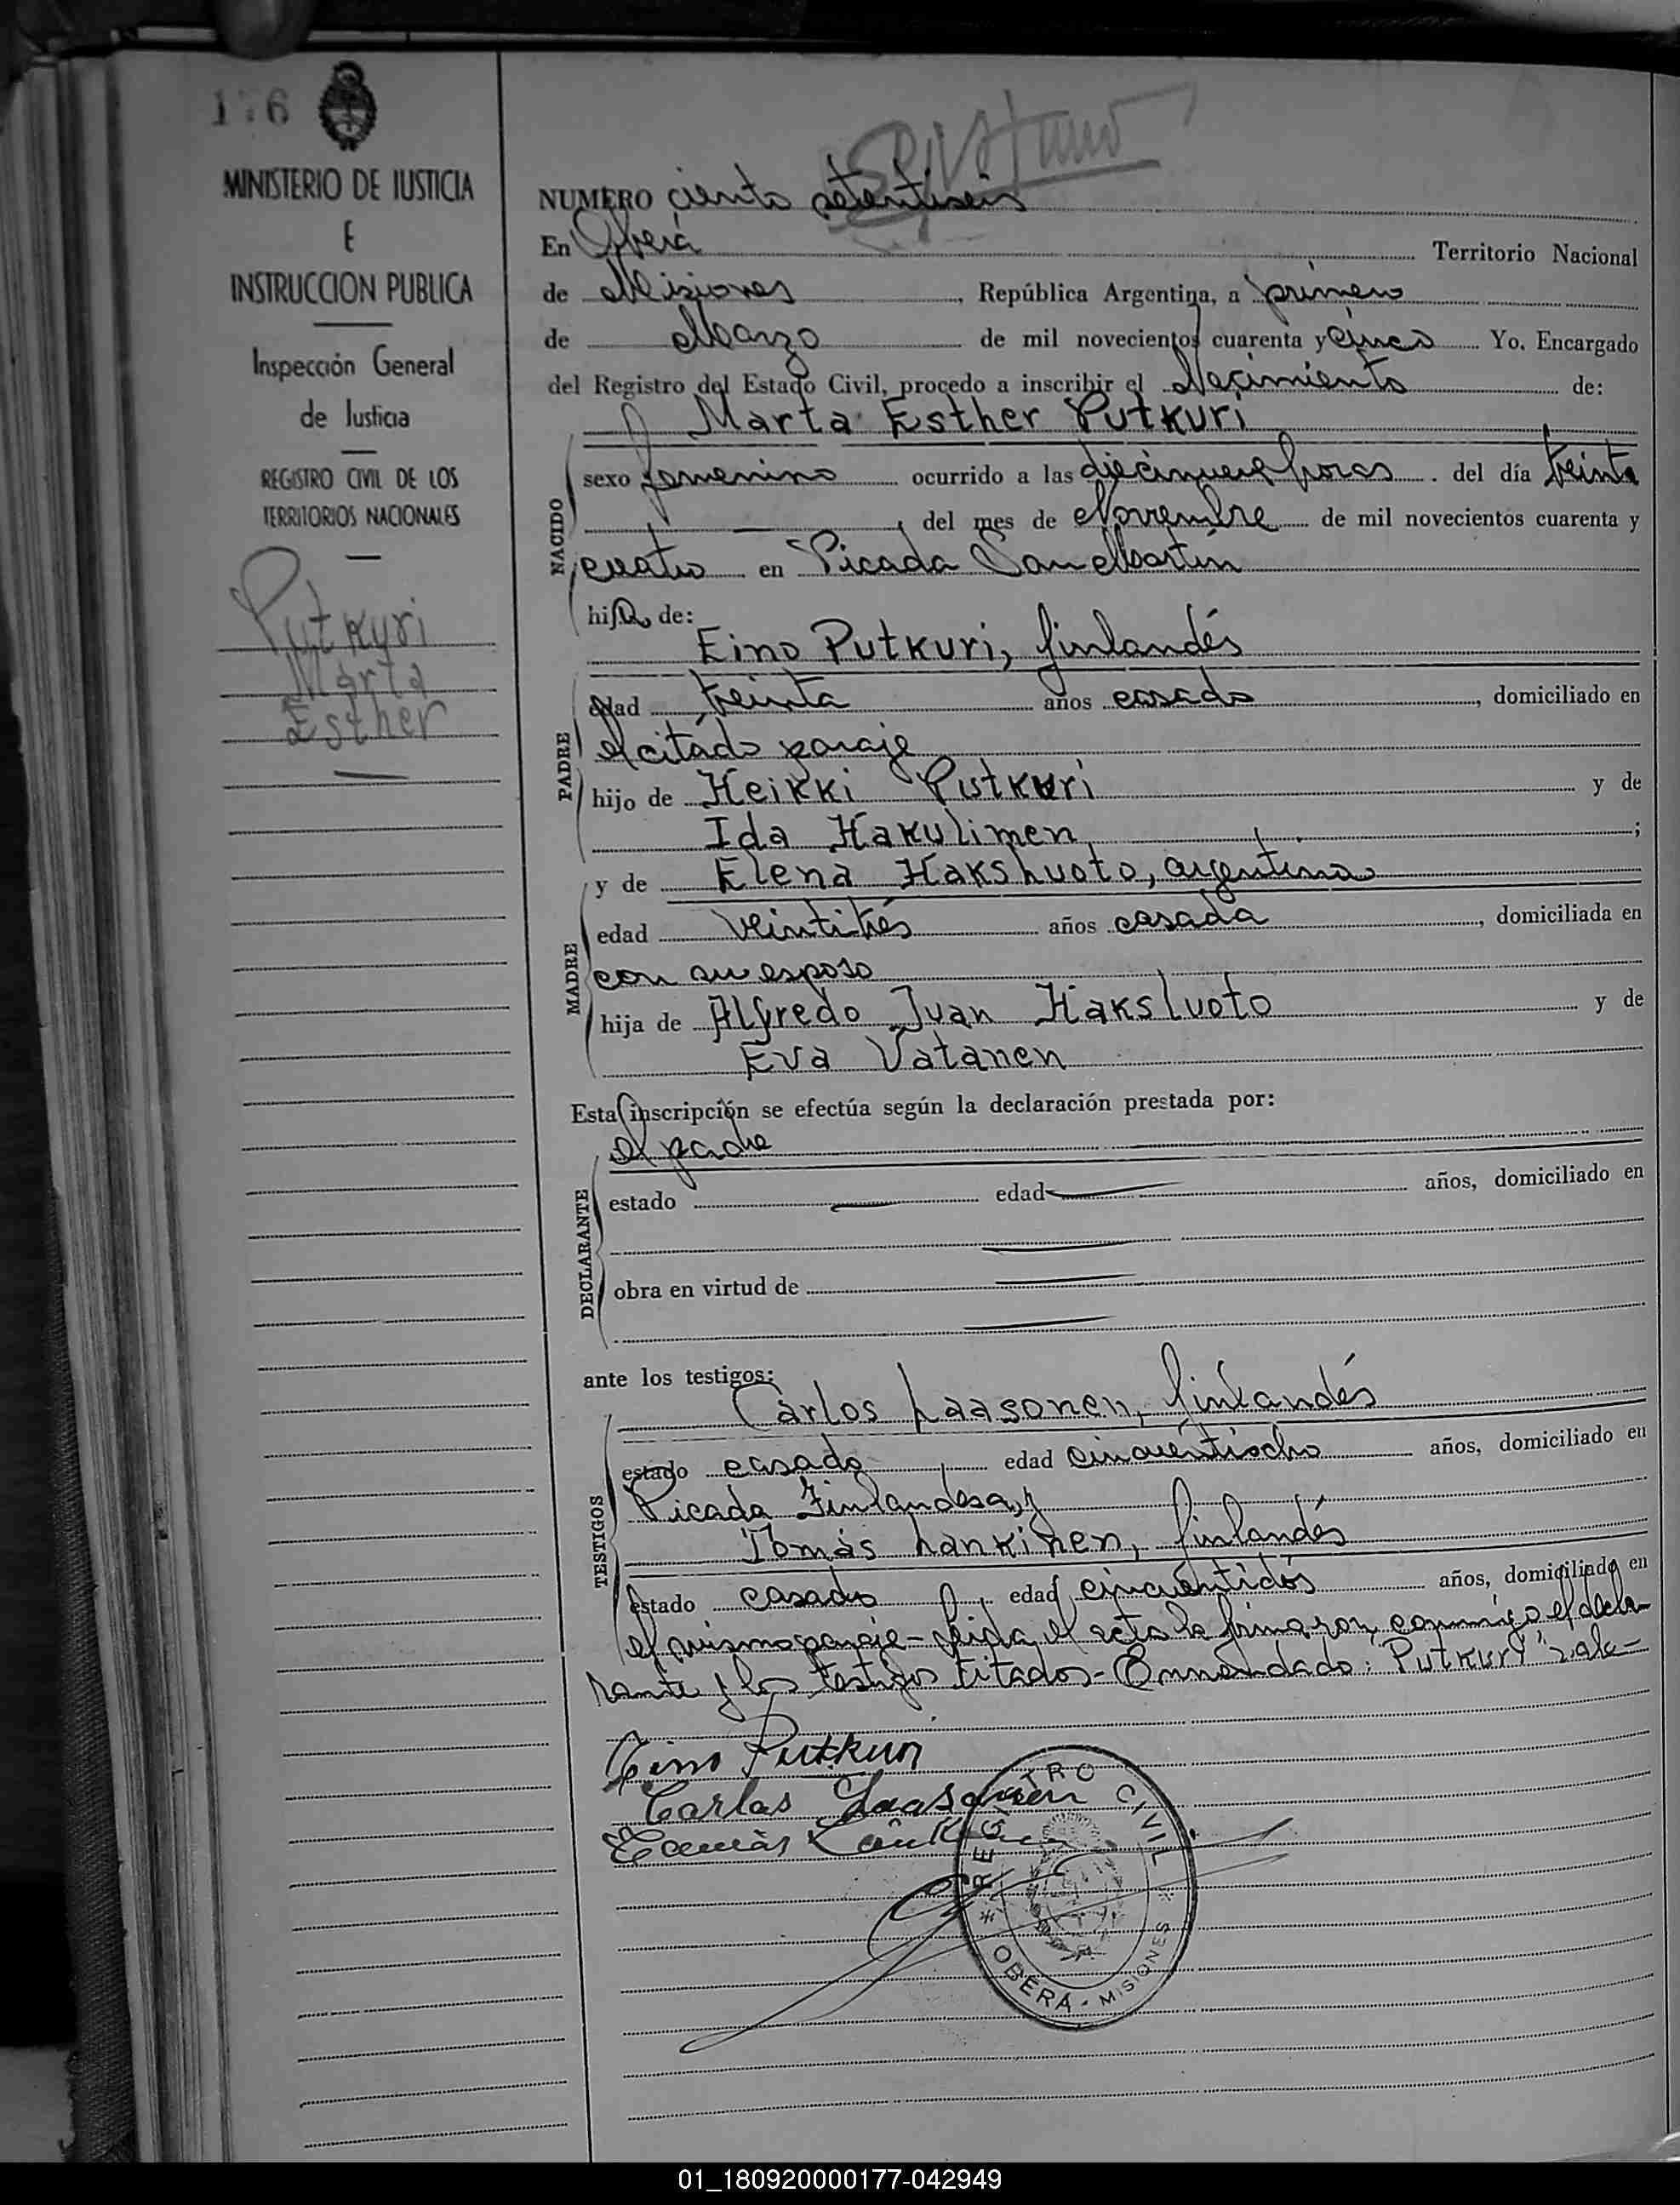 176
MINISTERIO DE JUSTICIA
E
INSTRUCCION PUBLICA
Inspección General
de Justicia
REGISTRO CIVIL DE LOS
TERRITORIOS NACIONALES
Putkuri
Marta
Esther
NUMERO ciento setentiseis
En Oberá Territorio Nacional
de Misiones, República Argentina, a primero
de Marzo de mil novecientos cuarenta y cinco Yo, Encargado
del Registro del Estado Civil, procedo a inscribir el Nacimiento de:
Marta Esther Putkuri
NACIDO
sexo femenino ocurrido a las diecinueve horas. del día treinta
, del mes de Noviembre de mil novecientos cuarenta y
cuatro en Picada San Martín
hija de:
Eino Putkuri, finlandés
PADRE
edad treinta años casado, domiciliado en
el citado paraje
hijo de Heikki Putkuri y de
Ida Hakulimen;
y de Elena Hakshuoto, argentina
MADRE
edad veintitrés años casada, domiciliada en
con su esposo
hija de Alfredo Juan Haksluoto y de
Eva Vatanen
Esta inscripción se efectúa según la declaración prestada por:
el padre
DECLARANTE
estado edad años, domiciliado en
obra en virtud de
ante los testigos:
Carlos Laasonen, finlandés
TESTIGOS
estado casado edad cincuentiocho años, domiciliado en
Picada Finlandesa, y
Tomás Lankinen, finlandés
estado casado edad cincuentidós años, domiciliado en
el mismo paraje - Leida el acta la firmaron conmigo el decla-
rante y los testigos citados - Enmendado: "Putkuri": vale -
Eino Putkuri
Carlos Laasonen
Tomás Lankinen
REGISTRO CIVIL
OBERÁ - MISIONES
01_180920000177-042949